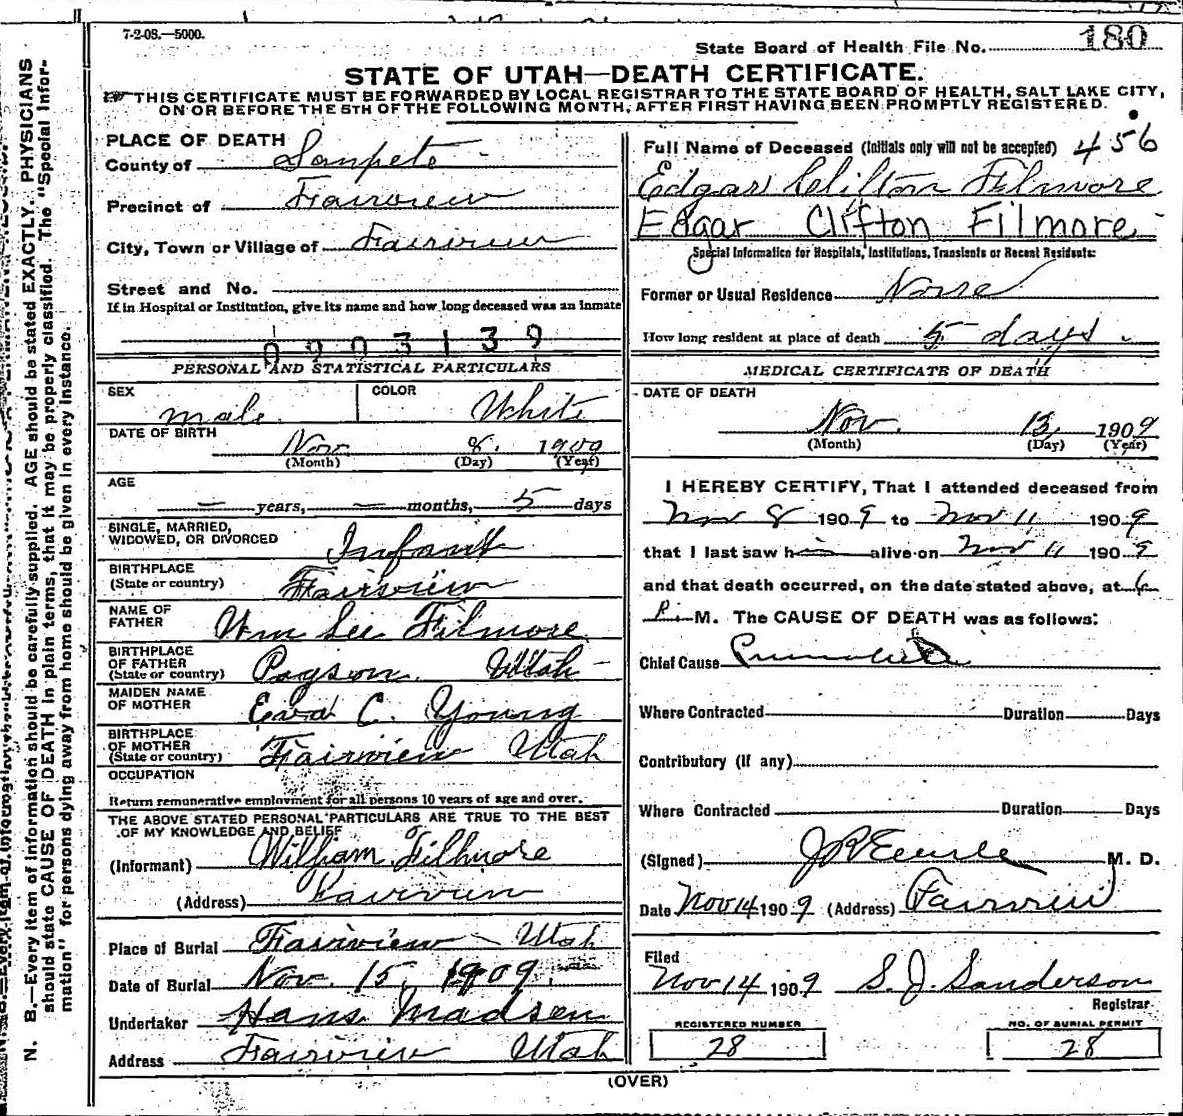 7-2-08.—5000.
State Board of Health File No. 180
STATE OF UTAH—DEATH CERTIFICATE.
THIS CERTIFICATE MUST BE FORWARDED BY LOCAL REGISTRAR TO THE STATE BOARD OF HEALTH, SALT LAKE CITY,
ON OR BEFORE THE 5TH OF THE FOLLOWING MONTH, AFTER FIRST HAVING BEEN PROMPTLY REGISTERED.
PLACE OF DEATH
County of Sanpete
Precinct of Fairview
City, Town or Village of Fairview
Street and No.
If in Hospital or Institution, give its name and how long deceased was an inmate
0903139
PERSONAL AND STATISTICAL PARTICULARS
SEX male
COLOR White
DATE OF BIRTH Nov. 8. 1909
(Month) (Day) (Year)
AGE
— years, — months, 5 days
SINGLE, MARRIED,
WIDOWED, OR DIVORCED Infant
BIRTHPLACE
(State or country) Fairview
NAME OF
FATHER Wm Lee Filmore
BIRTHPLACE
OF FATHER
(State or country) Payson. Utah
MAIDEN NAME
OF MOTHER Eva C. Young
BIRTHPLACE
OF MOTHER
(State or country) Fairview Utah
OCCUPATION
Return remunerative employment for all persons 10 years of age and over.
THE ABOVE STATED PERSONAL PARTICULARS ARE TRUE TO THE BEST
OF MY KNOWLEDGE AND BELIEF
(Informant) William Fillmore
(Address) Fairview
Place of Burial Fairview Utah
Date of Burial Nov. 15, 1909.
Undertaker Hans Madsen
Address Fairview Utah
Full Name of Deceased (Initials only will not be accepted) 456
Edgar Clifton Filmore
Edgar Clifton Filmore
Special Information for Hospitals, Institutions, Transients or Recent Residents:
Former or Usual Residence None
How long resident at place of death 5 days.
MEDICAL CERTIFICATE OF DEATH
DATE OF DEATH
Nov. 13 1909
(Month) (Day) (Year)
I HEREBY CERTIFY, That I attended deceased from
Nov 8 1909 to Nov 11 1909
that I last saw him alive on Nov 11 1909
and that death occurred, on the date stated above, at 6
P. M. The CAUSE OF DEATH was as follows:
Chief Cause
Where Contracted Duration Days
Contributory (If any)
Where Contracted Duration Days
(Signed) M. D.
Date Nov 14 1909 (Address) Fairview
Filed
Nov 14 1909 S. J. Sanderson
Registrar
REGISTERED NUMBER
28
NO. OF BURIAL PERMIT
28
(OVER)
N. B.—Every item of information should be carefully supplied. AGE should be stated EXACTLY. PHYSICIANS
should state CAUSE OF DEATH in plain terms, that it may be properly classified. The "Special Infor-
mation" for persons dying away from home should be given in every instance.